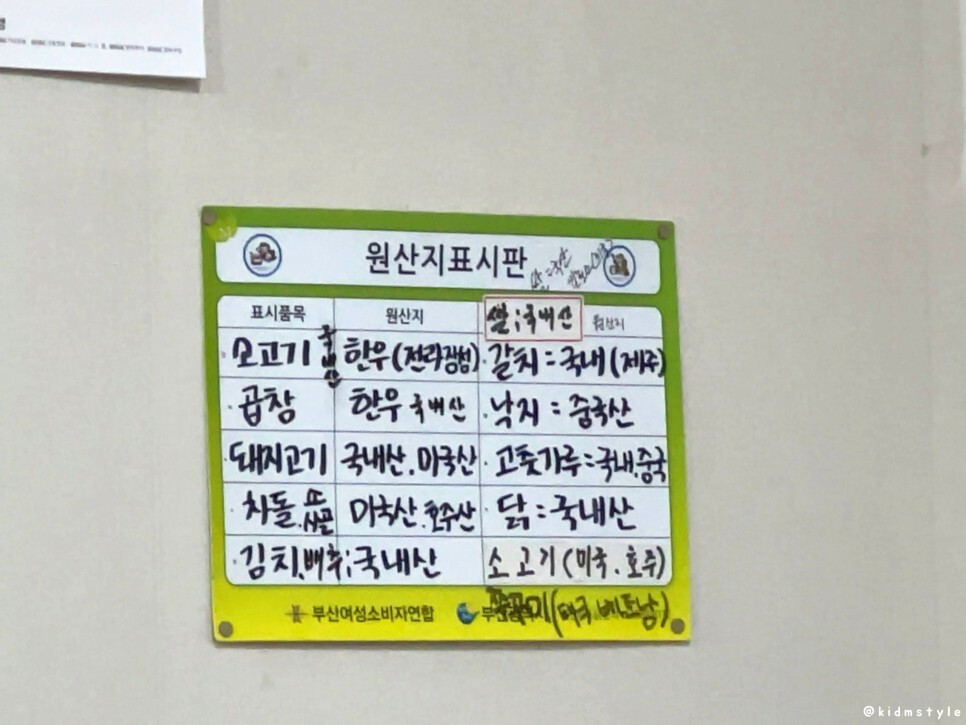 원산지표시판
쌀=국산
표시품목 원산지 쌀;국내산 원산지
소고기 국내산 한우(전락장성) 갈치=국내(제주)
곱창 한우 국내산 낙지=중국산
돼지고기 국내산.미국산 고춧가루=국내.중국
차돌.소사골 미국산.호주산 닭=국내산
김치.배추;국내산 소고기(미국.호주)
부산여성소비자연합 (태국 베트남)
@kidmstyle